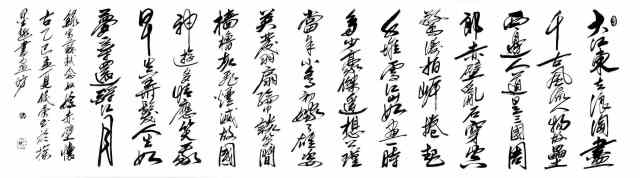 大江東去浪淘盡
千古風流人物故壘
西邊人道是三國周
郎赤壁亂石穿空
驚濤拍岸捲起
千堆雪江山如畫一時
多少豪傑遙想公瑾
當年小喬初嫁了雄姿
英發羽扇綸巾談笑間
檣櫓灰飛煙滅故國
神遊多情應笑我
早生華髮人生如
夢一尊還酹江月
錄宋蘇軾念奴嬌赤壁懷
古乙巳
書